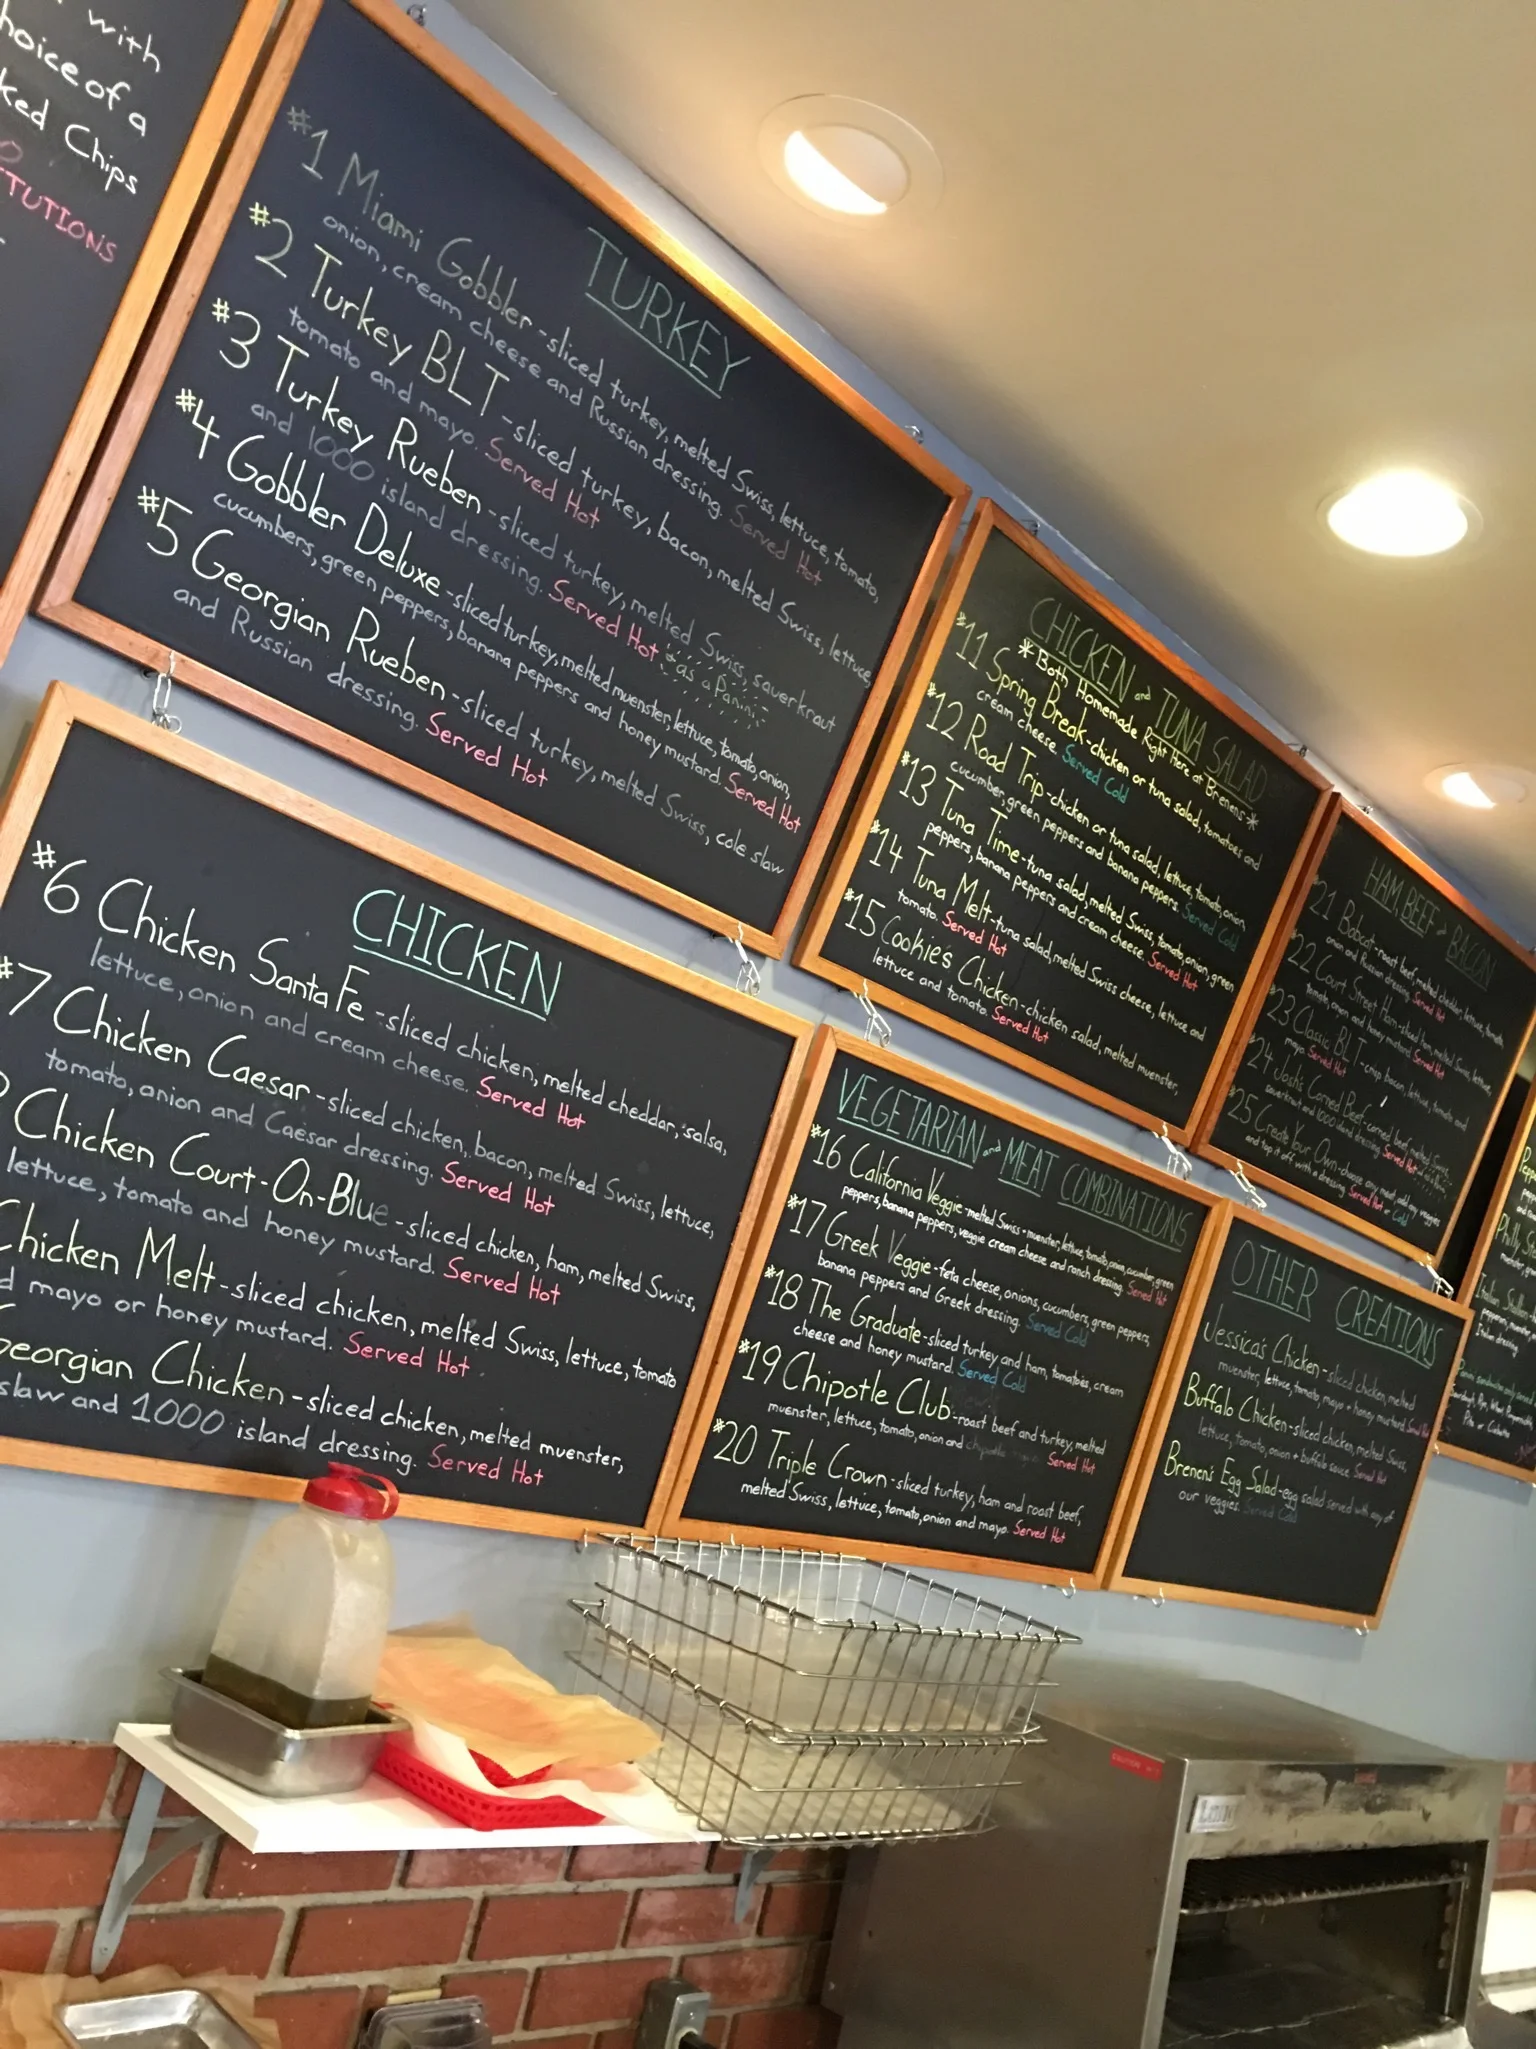 with
choice of a
ked Chips
TUTIONS
TURKEY
#1 Miami Gobbler - sliced turkey, melted Swiss, lettuce, tomato,
onion, cream cheese and Russian dressing. Served Hot
#2 Turkey BLT - sliced turkey, bacon, melted Swiss, lettuce,
tomato and mayo. Served Hot
#3 Turkey Rueben - sliced turkey, melted Swiss, sauerkraut
and 1000 island dressing. Served Hot *as a Panini*
#4 Gobbler Deluxe - sliced turkey, melted muenster, lettuce, tomato, onion,
cucumbers, green peppers, banana peppers and honey mustard. Served Hot
#5 Georgian Rueben - sliced turkey, melted Swiss, cole slaw
and Russian dressing. Served Hot
CHICKEN
#6 Chicken Santa Fe - sliced chicken, melted cheddar, salsa,
lettuce, onion and cream cheese. Served Hot
#7 Chicken Caesar - sliced chicken, bacon, melted Swiss, lettuce,
tomato, onion and Caesar dressing. Served Hot
Chicken Court-On-Blue - sliced chicken, ham, melted Swiss,
lettuce, tomato and honey mustard. Served Hot
Chicken Melt - sliced chicken, melted Swiss, lettuce, tomato
d mayo or honey mustard. Served Hot
Georgian Chicken - sliced chicken, melted muenster,
slaw and 1000 island dressing. Served Hot
CHICKEN and TUNA SALAD
*Both Homemade Right Here at Brenens*
#11 Spring Break - chicken or tuna salad, tomatoes and
cream cheese. Served Cold
#12 Road Trip - chicken or tuna salad, lettuce, tomato, onion
cucumber, green peppers and banana peppers. Served Cold
#13 Tuna Time - tuna salad, melted Swiss, tomato, onion, green
peppers, banana peppers and cream cheese. Served Hot
#14 Tuna Melt - tuna salad, melted Swiss cheese, lettuce and
tomato. Served Hot
#15 Cookie's Chicken - chicken salad, melted muenster,
lettuce and tomato. Served Hot
VEGETARIAN and MEAT COMBINATIONS
#16 California Veggie - melted Swiss + muenster, lettuce, tomato, onion, cucumber, green
peppers, banana peppers, veggie cream cheese and ranch dressing. Served Hot
#17 Greek Veggie - feta cheese, onions, cucumbers, green peppers,
banana peppers and Greek dressing. Served Cold
#18 The Graduate - sliced turkey and ham, tomatoes, cream
cheese and honey mustard. Served Cold
#19 Chipotle Club - roast beef and turkey, melted
muenster, lettuce, tomato, onion and chipotle Served Hot
#20 Triple Crown - sliced turkey, ham and roast beef,
melted Swiss, lettuce, tomato, onion and mayo. Served Hot
HAM, BEEF & BACON
#21 Bobcat - roast beef, melted cheddar, lettuce, tomato,
onion and Russian dressing. Served Hot
#22 Court Street Ham - sliced ham, melted Swiss, lettuce,
tomato, onion and honey mustard. Served Hot
#23 Classic BLT - crisp bacon, lettuce, tomato and
mayo. Served Hot
#24 Josh's Corned Beef - corned beef, melted Swiss,
sauerkraut and 1000 island dressing. Served Hot
#25 Create Your Own - choose any meat, add any veggies
and top it off with a dressing. Served Hot or Cold
OTHER CREATIONS
Jessica's Chicken - sliced chicken, melted
muenster, lettuce, tomato, mayo + honey mustard. Served Hot
Buffalo Chicken - sliced chicken, melted Swiss,
lettuce, tomato, onion + buffalo sauce. Served Hot
Brenen's Egg Salad - egg salad served with any of
our veggies. Served Cold
Philly
Italian
Italian dressing